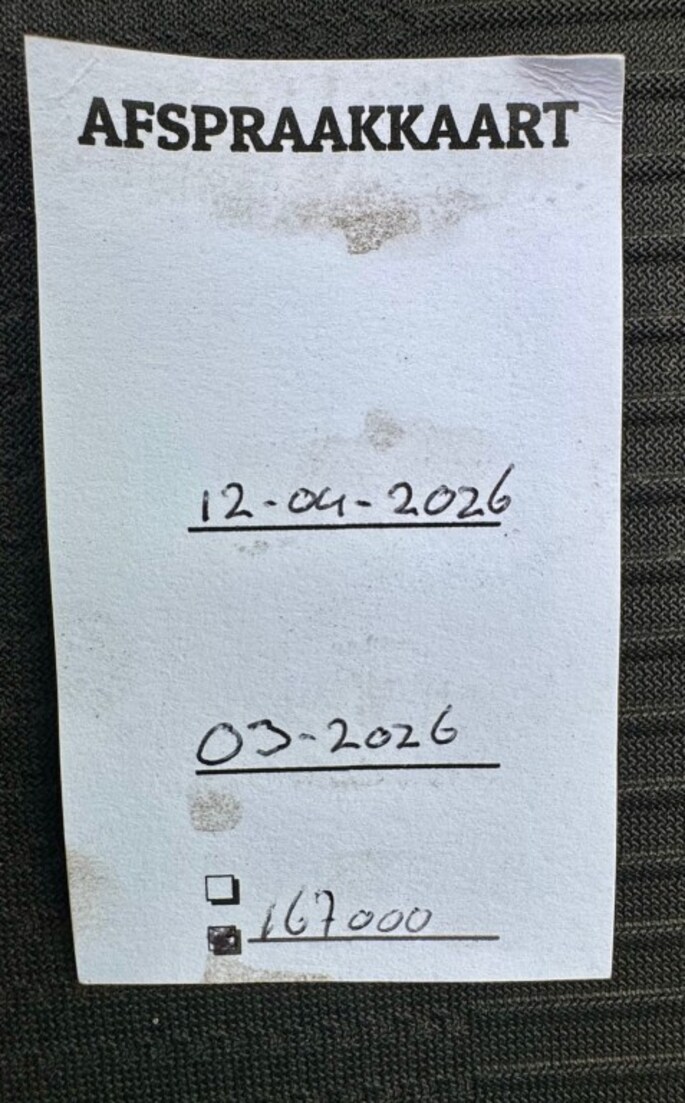 AFSPRAAKKAART
12-04-2026
03-2026
167000